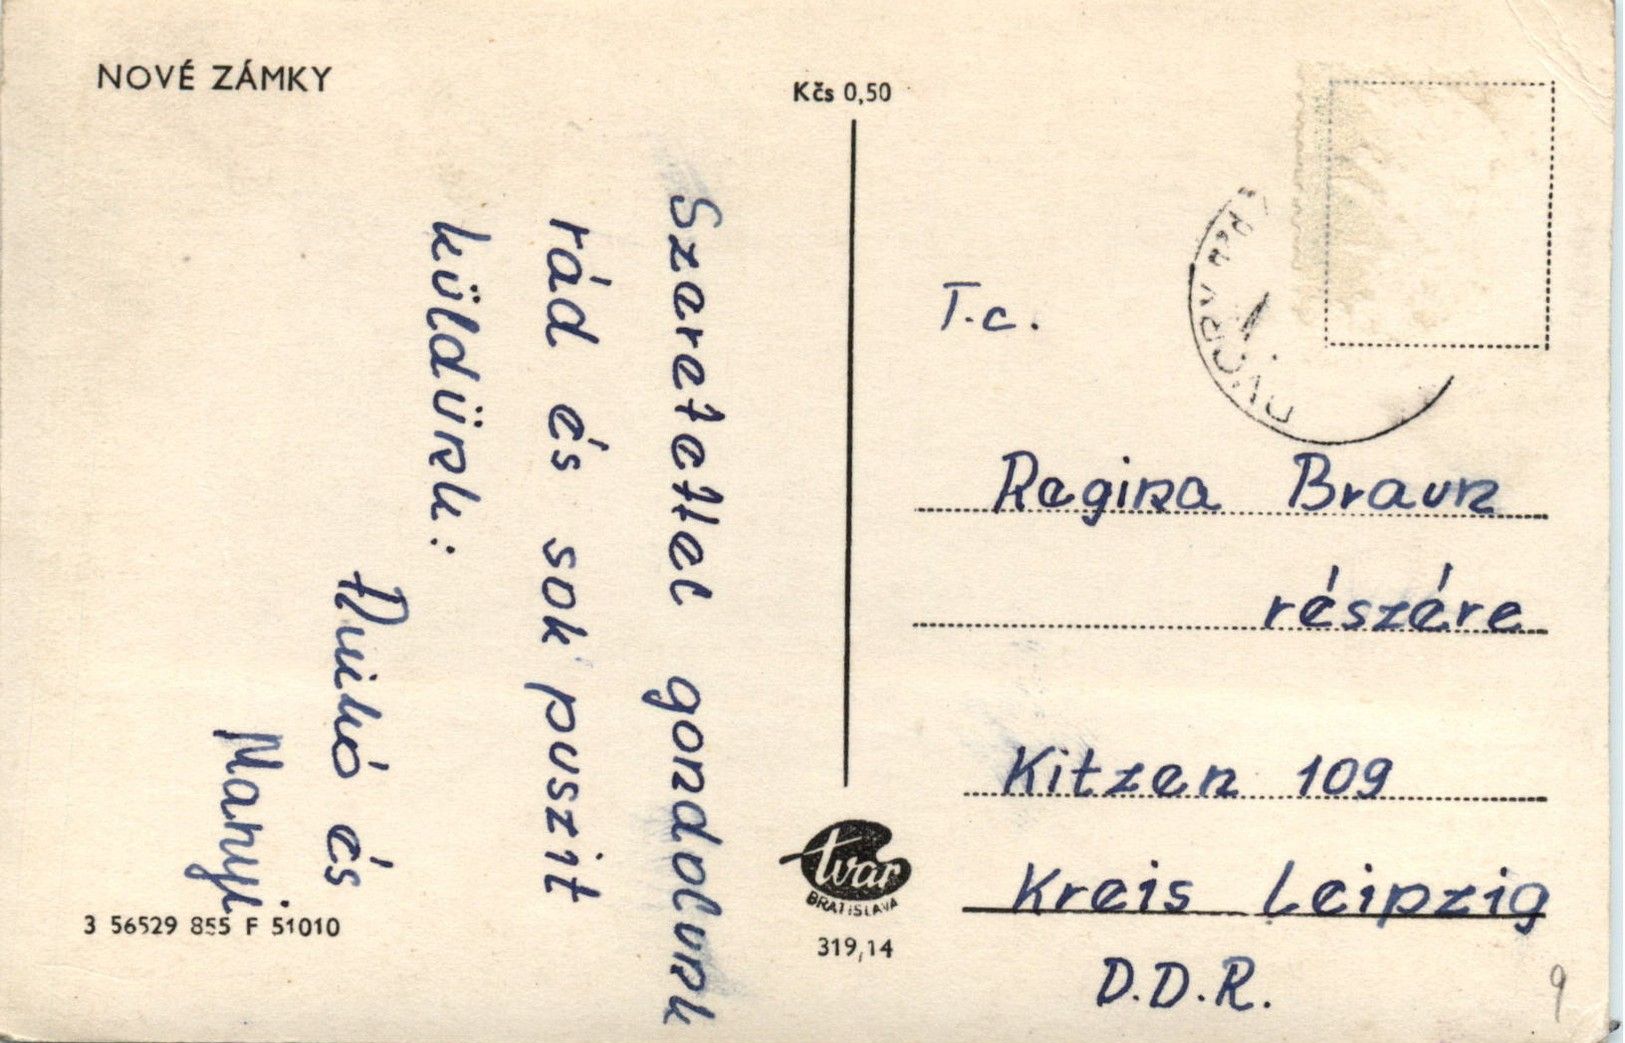 NOVÉ ZÁMKY
Kčs 0,50
Szeretettel gondolunk
rád és sok puszit
küldünk:
Anikó és
Manyi.
3 56529 855 F 51010
tvar
BRATISLAVA
319,14
T.c.
Regina Braun
részére
Kitzen 109
Kreis Leipzig
D.D.R.
9